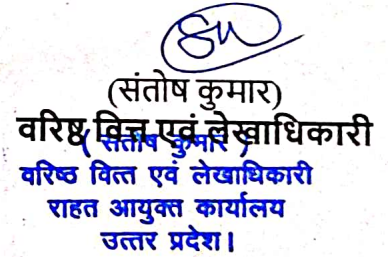 (संतोष कुमार)
वरिष्ठ वित्त एवं लेखाधिकारी
( संतोष कुमार )
वरिष्ठ वित्त एवं लेखाधिकारी
राहत आयुक्त कार्यालय
उत्तर प्रदेश।